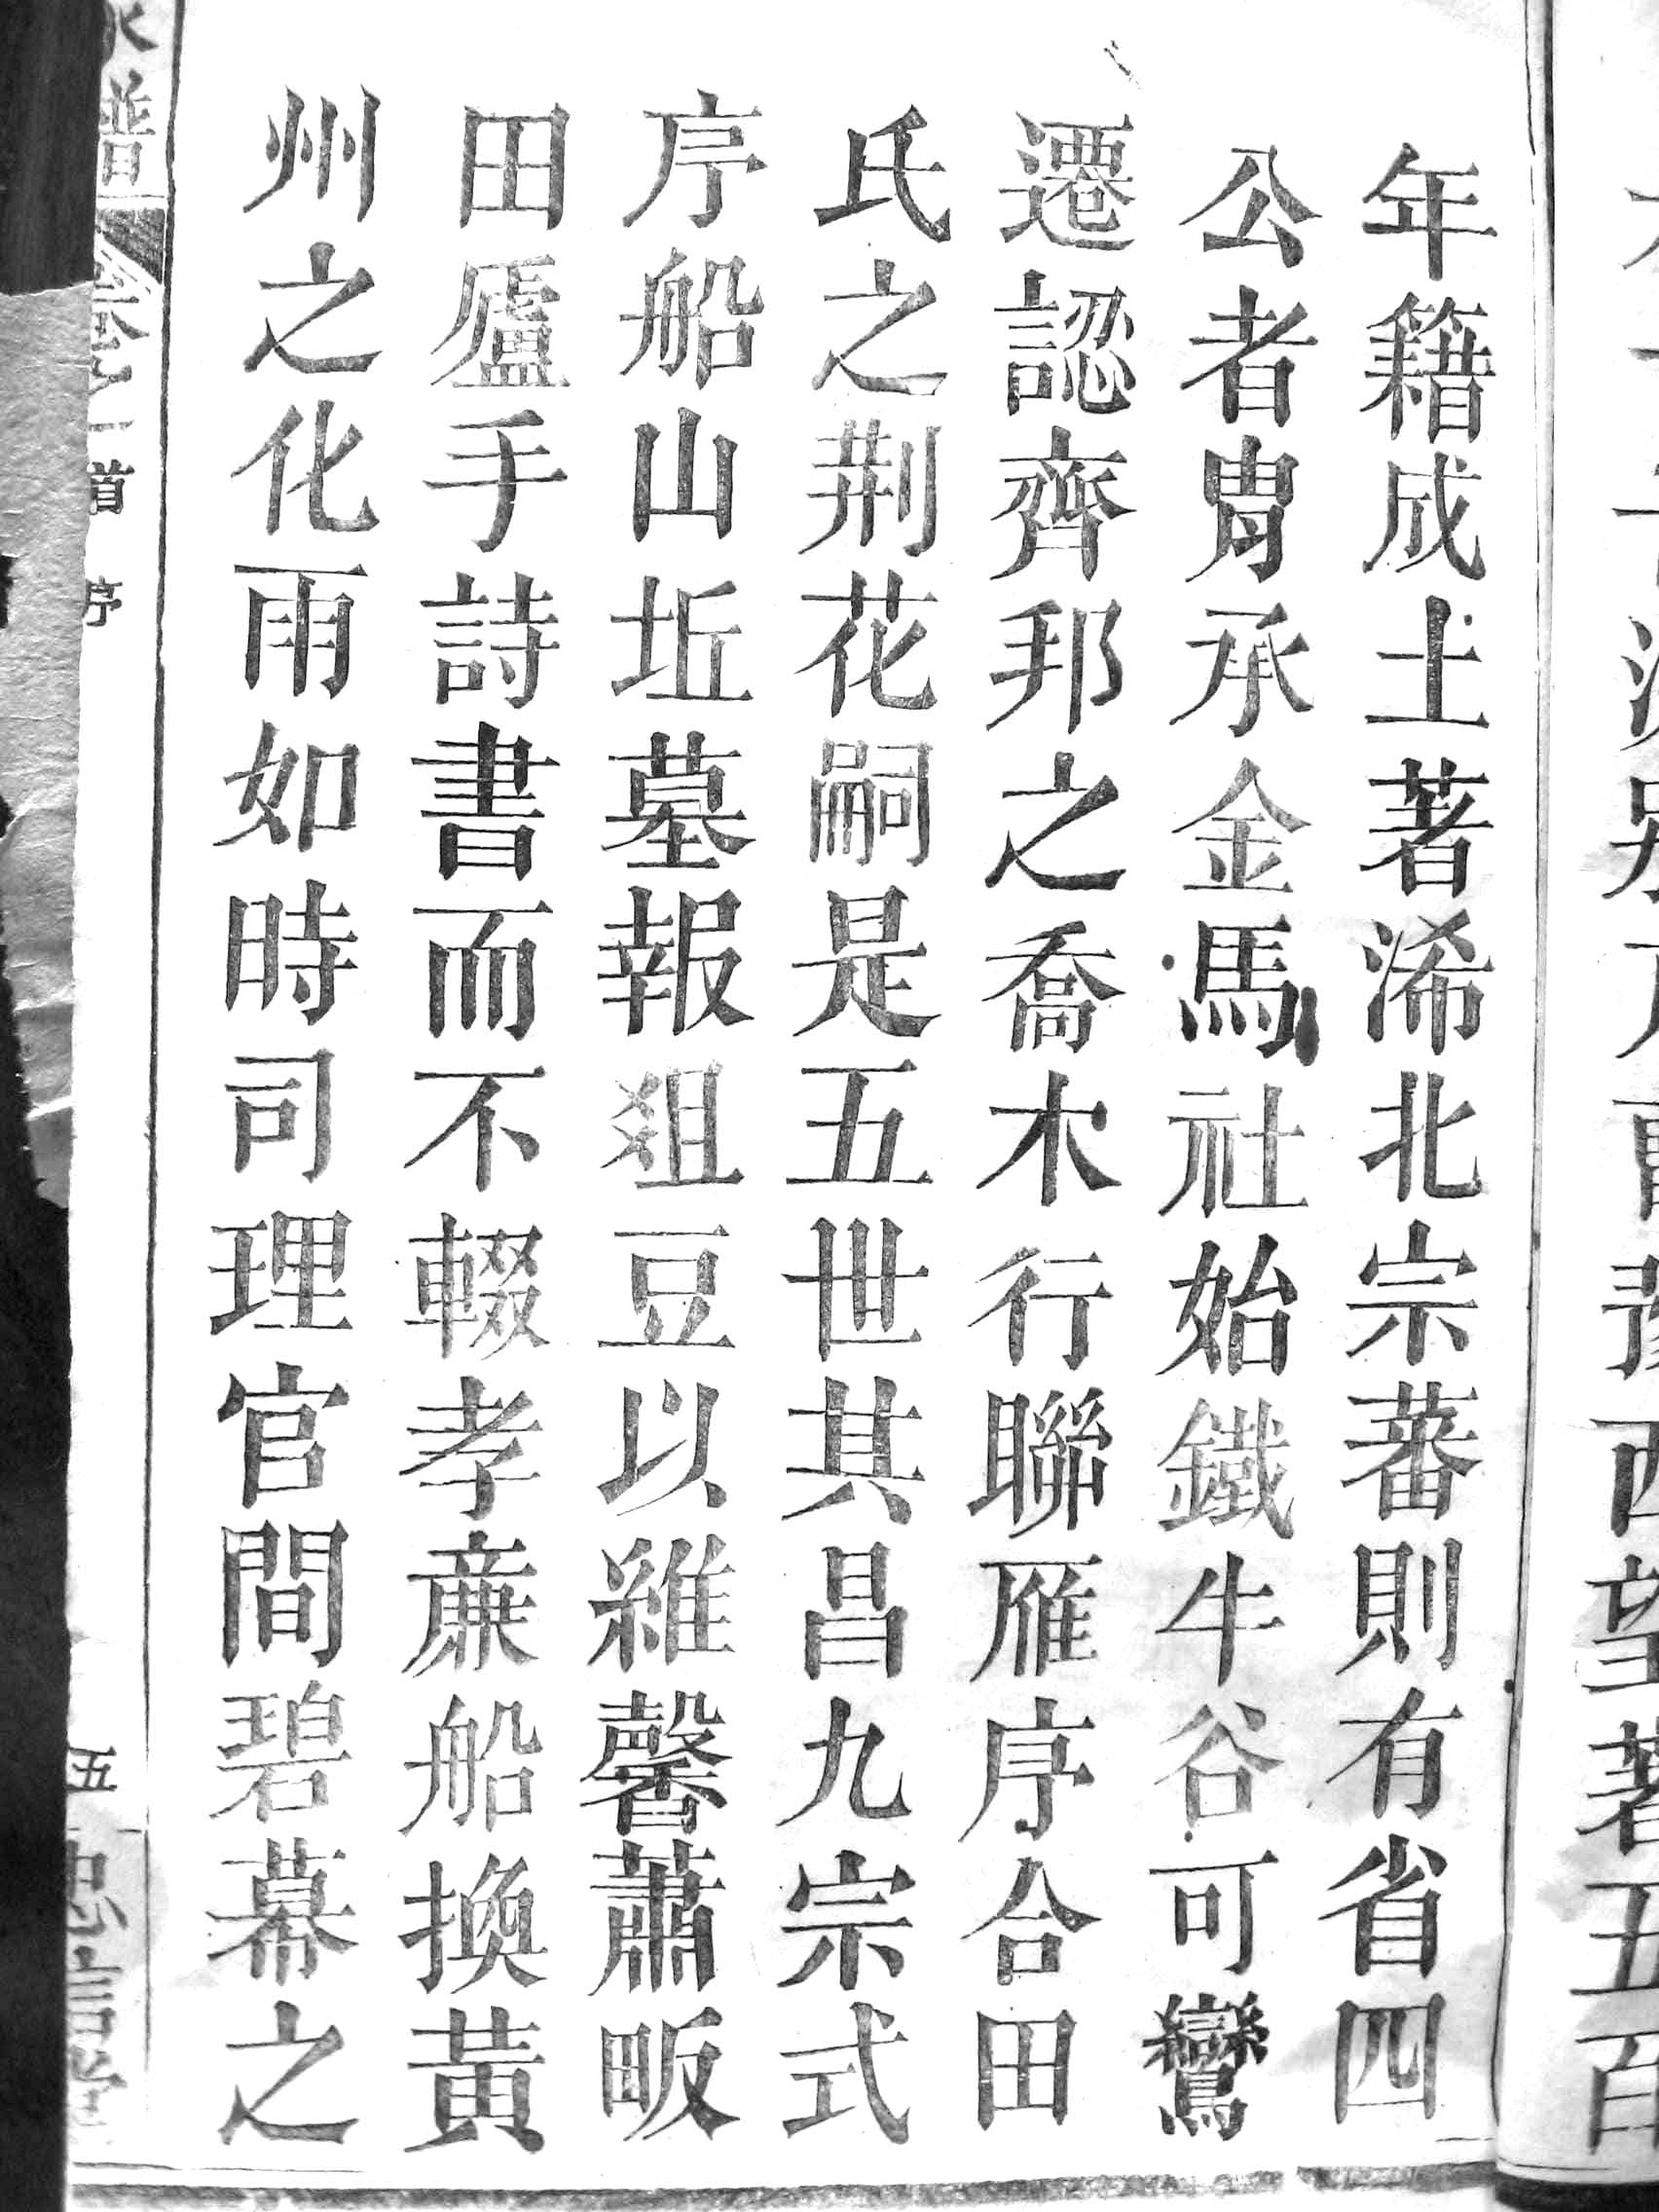 年籍成土著浠北宗蕃則有省四
公者胄承金馬社始鐵牛谷可鸞
遷認齊邦之喬木行聯雁序合田
氏之荆花嗣是五世其昌九宗式
序船山坵墓報爼豆以維馨蕭畈
田廬手詩書而不輟孝亷船換黃
州之化雨如時司理官間碧幕之
首序
五